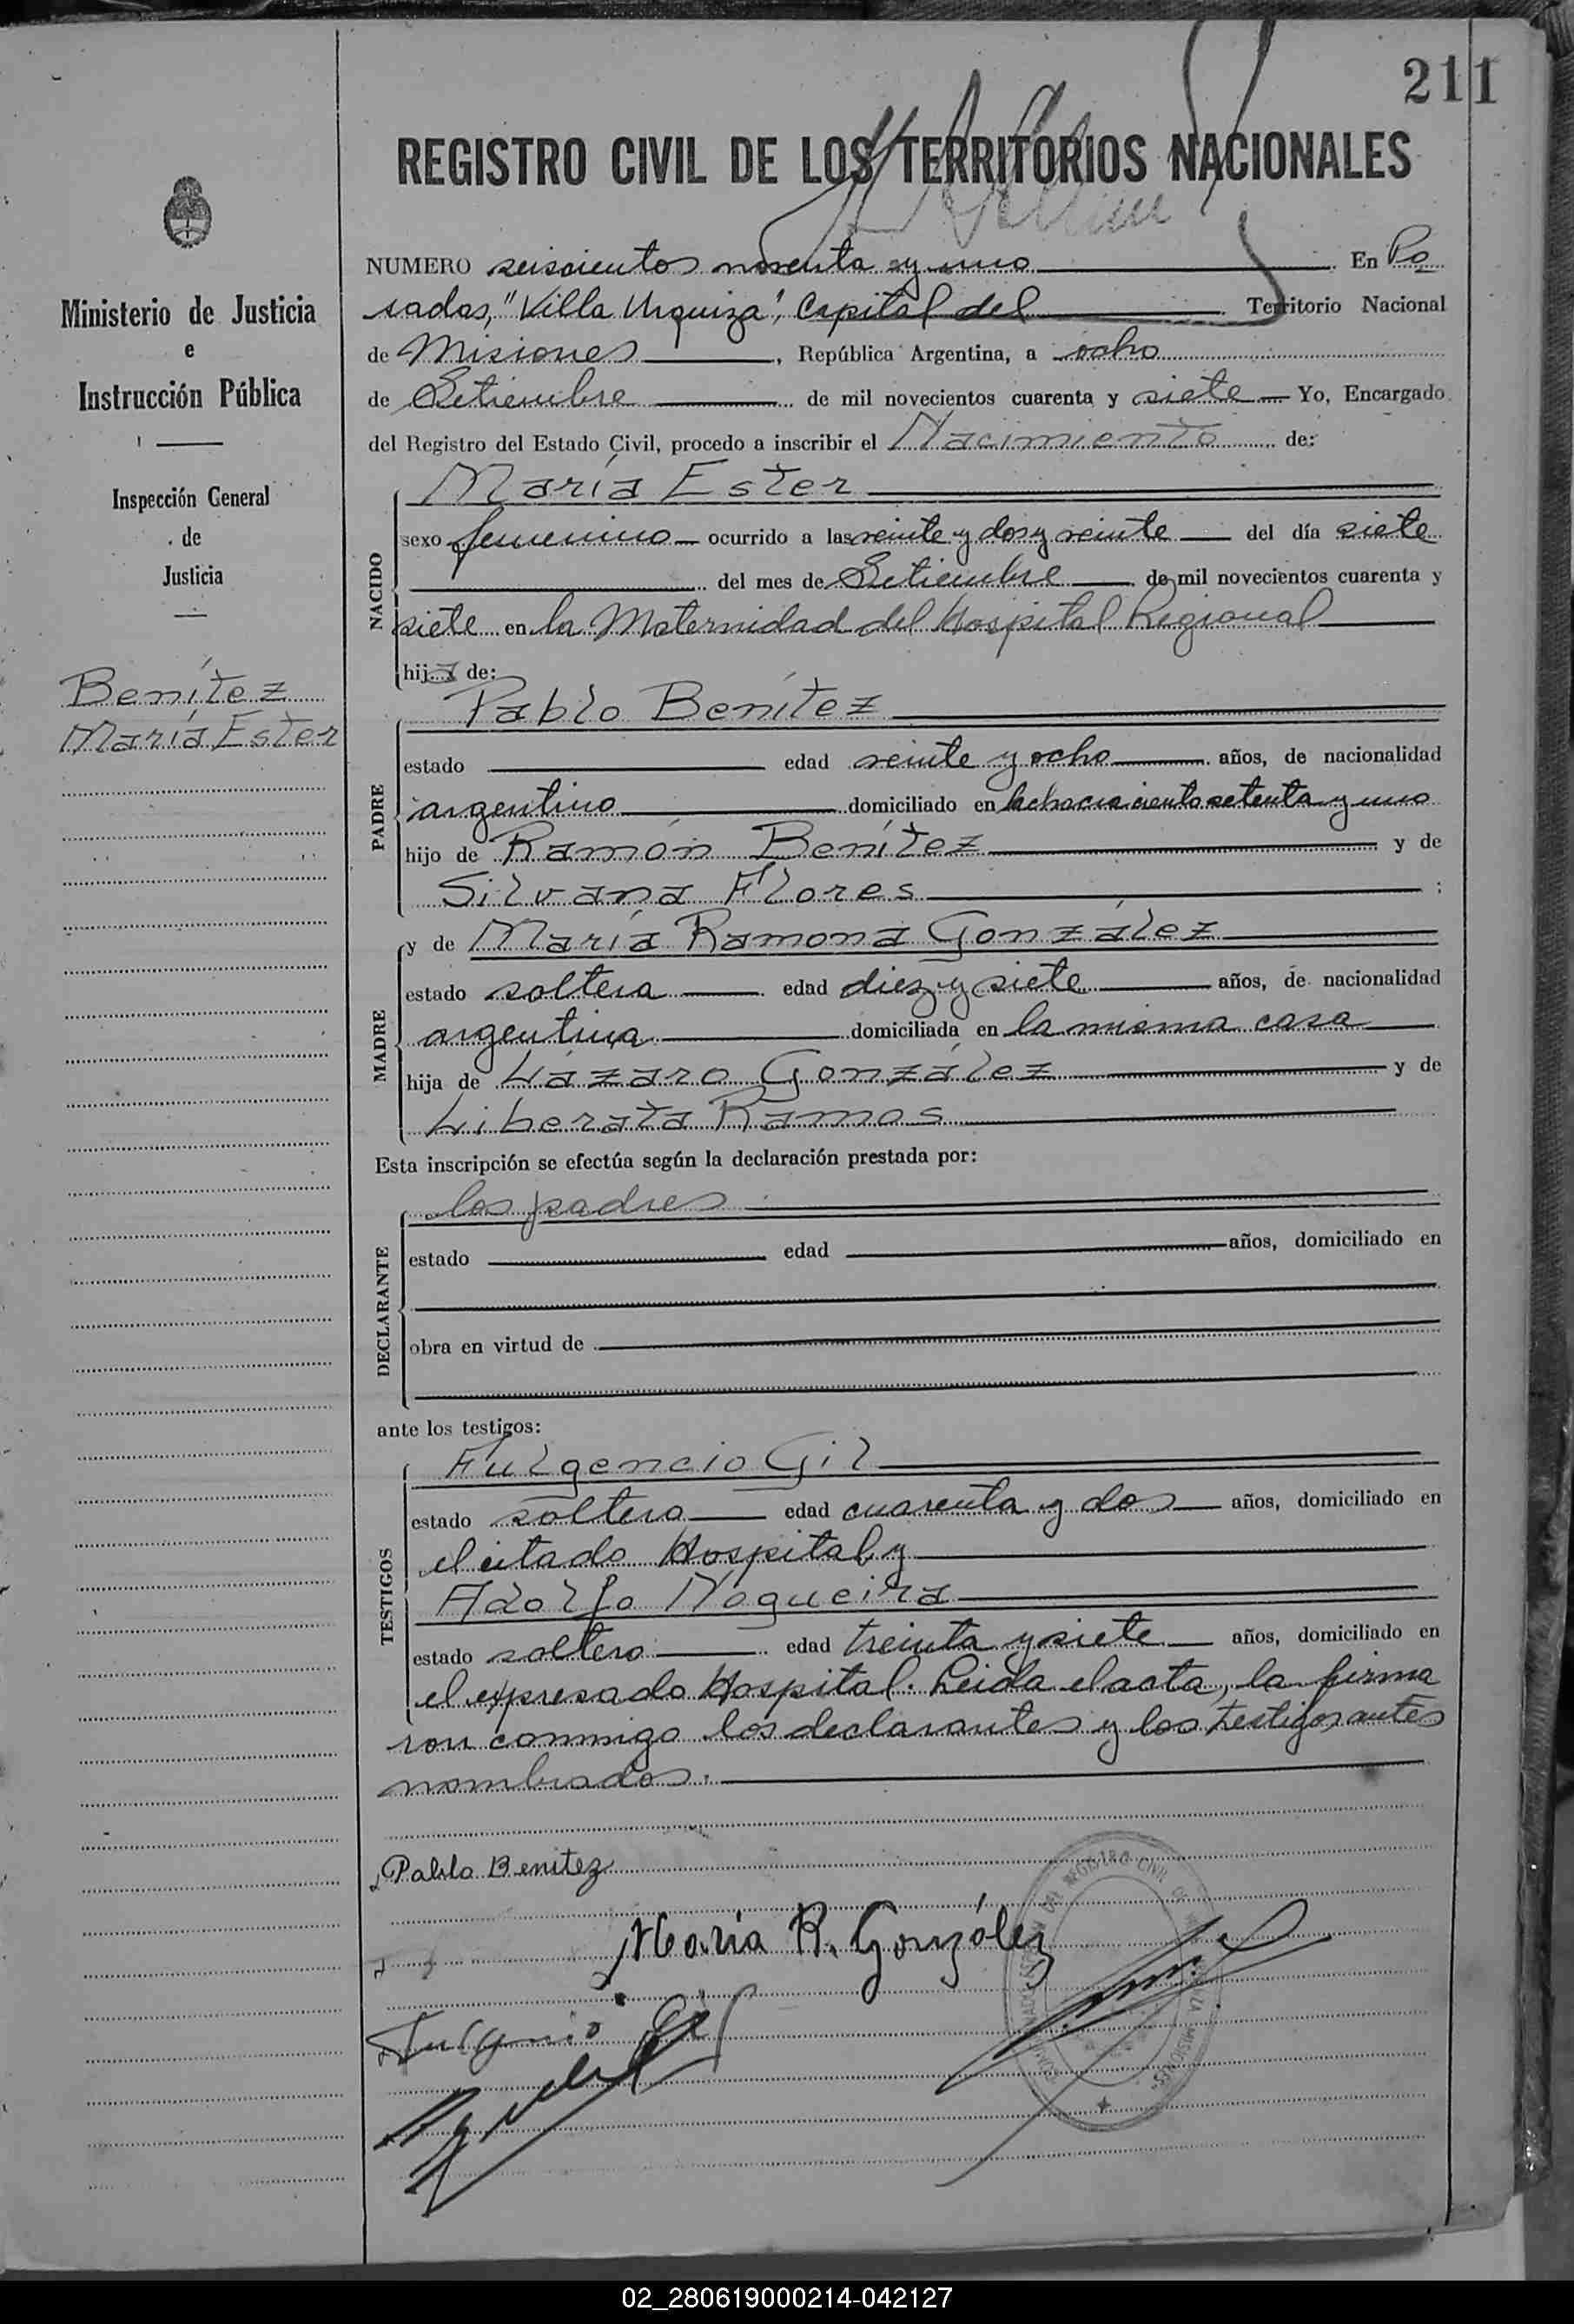 211
REGISTRO CIVIL DE LOS TERRITORIOS NACIONALES
Ministerio de Justicia
e
Instrucción Pública
Inspección General
de
Justicia
Benítez
María Ester
NUMERO seiscientos noventa y uno En Po
sadas, "Villa Urquiza", Capital del Territorio Nacional
de Misiones, República Argentina, a ocho
de Setiembre de mil novecientos cuarenta y siete Yo, Encargado
del Registro del Estado Civil, procedo a inscribir el Nacimiento de:
NACIDO
María Ester
sexo femenino ocurrido a las veinte y dos y veinte del día siete
del mes de Setiembre de mil novecientos cuarenta y
siete en la Maternidad del Hospital Regional
hija de:
PADRE
Pablo Benítez
estado edad veinte y ocho años, de nacionalidad
argentino domiciliado en la chacra ciento setenta y uno
hijo de Ramón Benítez y de
Silvana Flores ;
MADRE
y de María Ramona González
estado soltera edad diez y siete años, de nacionalidad
argentina domiciliada en la misma casa
hija de Lázaro González y de
Liberata Ramos
Esta inscripción se efectúa según la declaración prestada por:
DECLARANTE
los padres
estado edad años, domiciliado en
obra en virtud de
ante los testigos:
TESTIGOS
Fulgencio Gil
estado soltero edad cuarenta y dos años, domiciliado en
el citado Hospital y
Adolfo Nogueira
estado soltero edad treinta y siete años, domiciliado en
el expresado Hospital. Leída el acta, la firma
ron conmigo los declarantes y los testigos antes
nombrados.
Pablo Benitez
María R. González
Fulgencio Gil
REGISTRO CIVIL
MISIONES
02_280619000214-042127